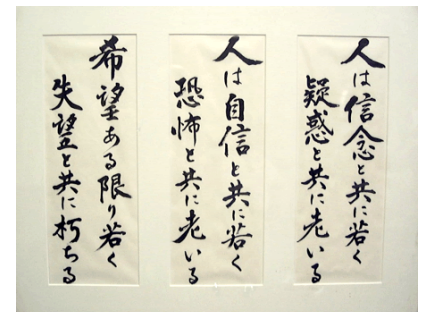 人は信念と共に若く
疑惑と共に老いる
人は自信と共に若く
恐怖と共に老いる
希望ある限り若く
失望と共に朽ちる